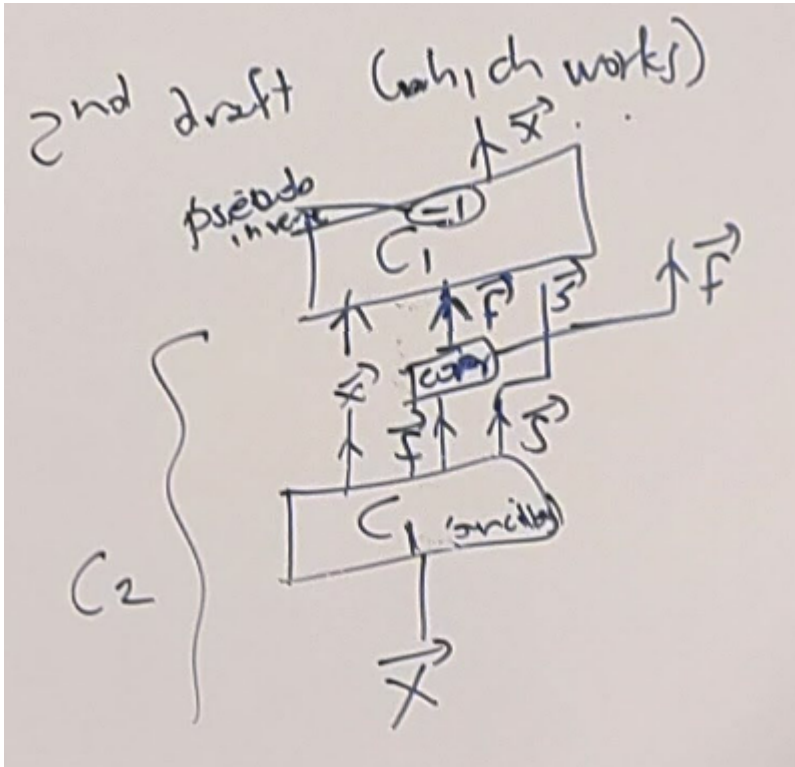 2nd draft (which works)
x
pseudo
inverse
-1
C1
f
s
f
copy
x
f
s
C1
C2
X